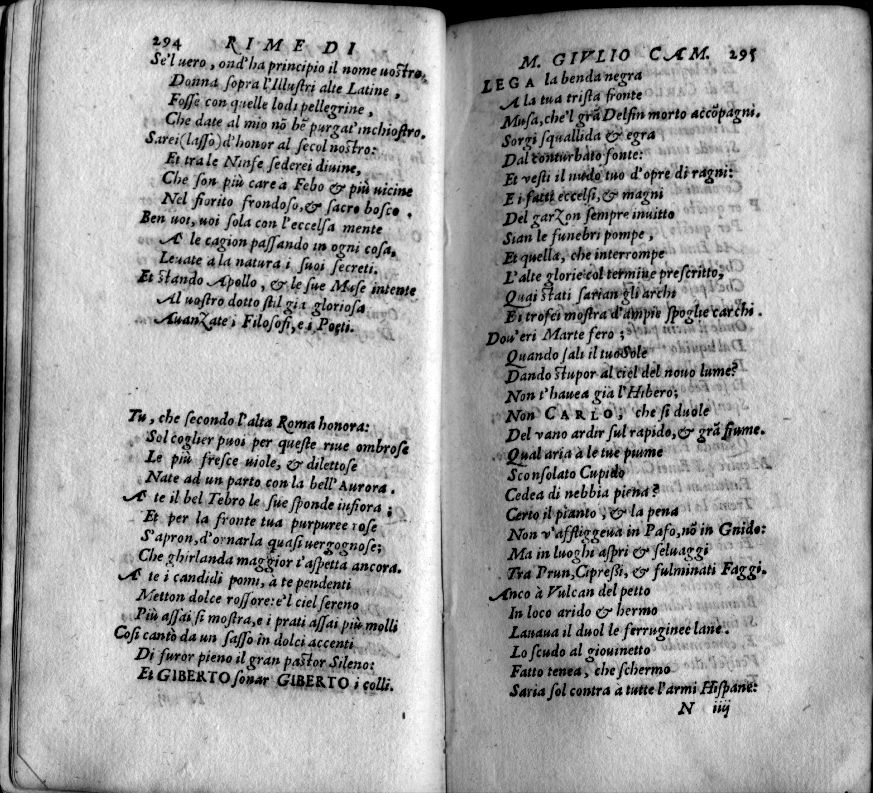 294 RIME DI
Se'l uero, ond'ha principio il nome uostro,
Donna sopra l'Illustri alte Latine,
Fosse con quelle lodi pellegrine,
Che date al mio nõ bẽ purgat'inchiostro.
Sarei (lasso) d'honor al secol nostro:
Et tra le Ninfe sederei diuine,
Che son più care a Febo & più uicine
Nel fiorito frondoso, & sacro bosco.
Ben uoi, uoi sola con l'eccelsa mente
A le cagion passando in ogni cosa,
Leuate a la natura i suoi secreti.
Et stando Apollo, & le sue Muse intente
Al uostro dotto stil gia gloriosa
Auanzate i Filosofi, e i Poeti.
Tu, che secondo l'alta Roma honora:
Sol coglier puoi per queste riue ombrose
Le più fresce uiole, & dilettose
Nate ad un parto con la bell'Aurora.
A te il bel Tebro le sue sponde infiora;
Et per la fronte tua purpuree rose
S'apron, d'ornarla quasi uergognose;
Che ghirlanda maggior t'aspetta ancora.
A te i candidi pomi, à te pendenti
Metton dolce rossore: e'l ciel sereno
Più assai si mostra, e i prati assai più molli
Cosi cantò da un sasso in dolci accenti
Di furor pieno il gran pastor Sileno:
Et GIBERTO sonar GIBERTO i colli.
M. GIVLIO CAM. 295
LEGA la benda negra
A la tua trista fronte
Musa, che'l grã Delfin morto accõpagni.
Sorgi squallida & egra
Dal conturbato fonte:
Et vesti il nudo tuo d'opre di ragni:
E i fatti eccelsi, & magni
Del garzon sempre inuitto
Sian le funebri pompe,
Et quella, che interrompe
L'alte glorie col termine prescritto,
Quai stati sarian gli archi
Ei trofei mostra d'ampie spoglie carchi.
Dou'eri Marte fero;
Quando salì il tuo Sole
Dando stupor al ciel del nouo lume?
Non t'hauea già l'Hibero;
Non CARLO, che si duole
Del vano ardir sul rapido, & grã fiume.
Qual aria à le tue piume
Sconsolato Cupido
Cedea di nebbia piena?
Certo il pianto, & la pena
Non v'affliggeua in Pafo, nõ in Gnido:
Ma in luoghi aspri & seluaggi
Tra Prun, Cipressi, & fulminati Faggi.
Anco à Vulcan del petto
In loco arido & hermo
Lauaua il duol le ferruginee lane.
Lo scudo al giouinetto
Fatto tenea, che schermo
Saria sol contra à tutte l'armi Hispane:
N iiij